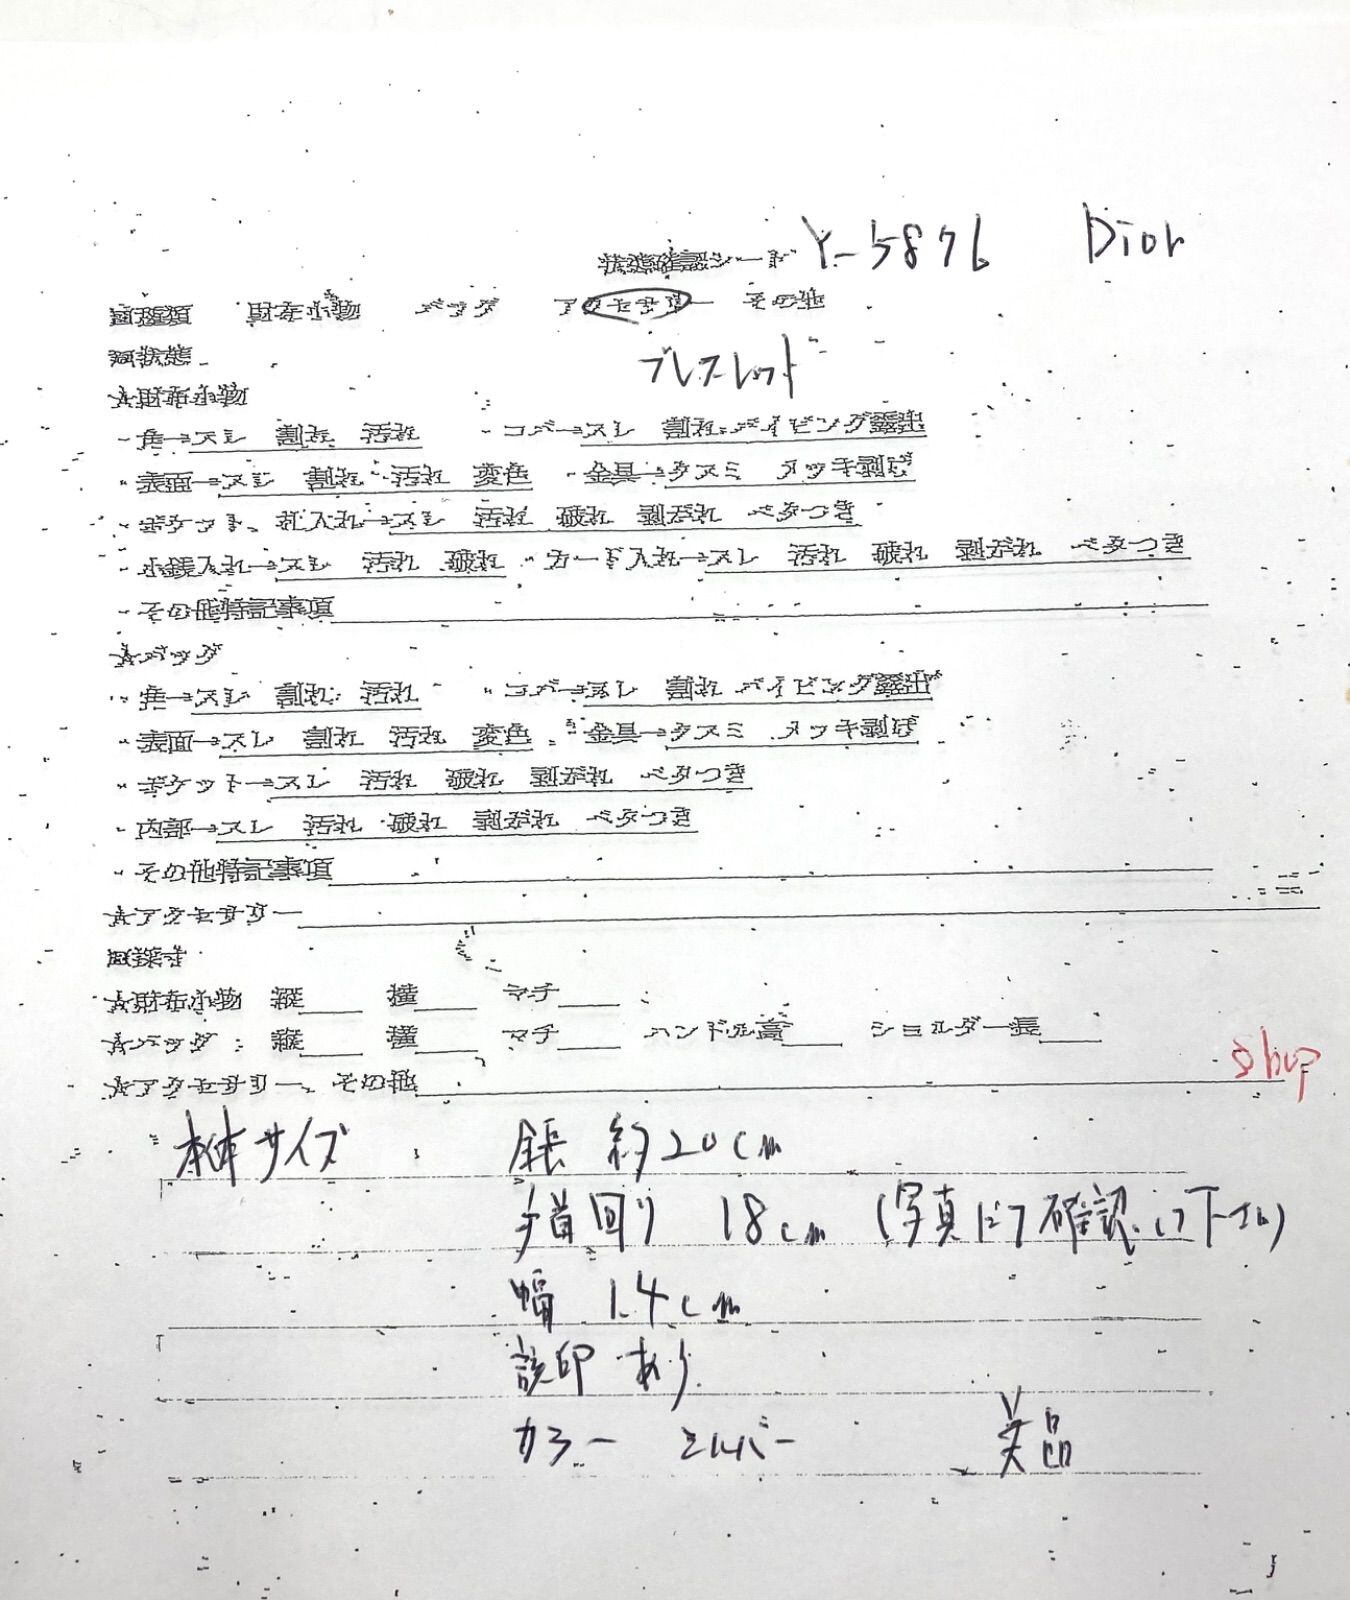 状態確認シード Y-5876 Dior
□種類 財布小物 バッグ アクセサリー その他
□状態
ブレスレット゛
☆財布小物
・角→スレ 割れ 汚れ ・コバ→スレ 割れ パイピング露出
・表面→スレ 割れ 汚れ 変色 ・金具→クスミ メッキ剥げ
・ポケット、札入れ→スレ 汚れ 破れ 剥がれ ベタつき
・小銭入れ→スレ 汚れ 破れ ・カード入れ→スレ 汚れ 破れ 剥がれ ベタつき
・その他特記事項
☆バッグ
・角→スレ 割れ 汚れ ・コバ→スレ 割れ パイピング露出
・表面→スレ 割れ 汚れ 変色 ・金具→クスミ メッキ剥げ
・ポケット→スレ 汚れ 破れ 剥がれ ベタつき
・内部→スレ 汚れ 破れ 剥がれ ベタつき
・その他特記事項
☆アクセサリー
□採寸
☆財布小物 縦 横 マチ
☆バッグ 縦 横 マチ ハンドル高 ショルダー長
☆アクセサリー、その他
shop
本体サイズ 全長 約20cm
手首回り 18cm (写真にて確認して下さい)
幅 1.4cm
刻印 あり
カラー シルバー 美品